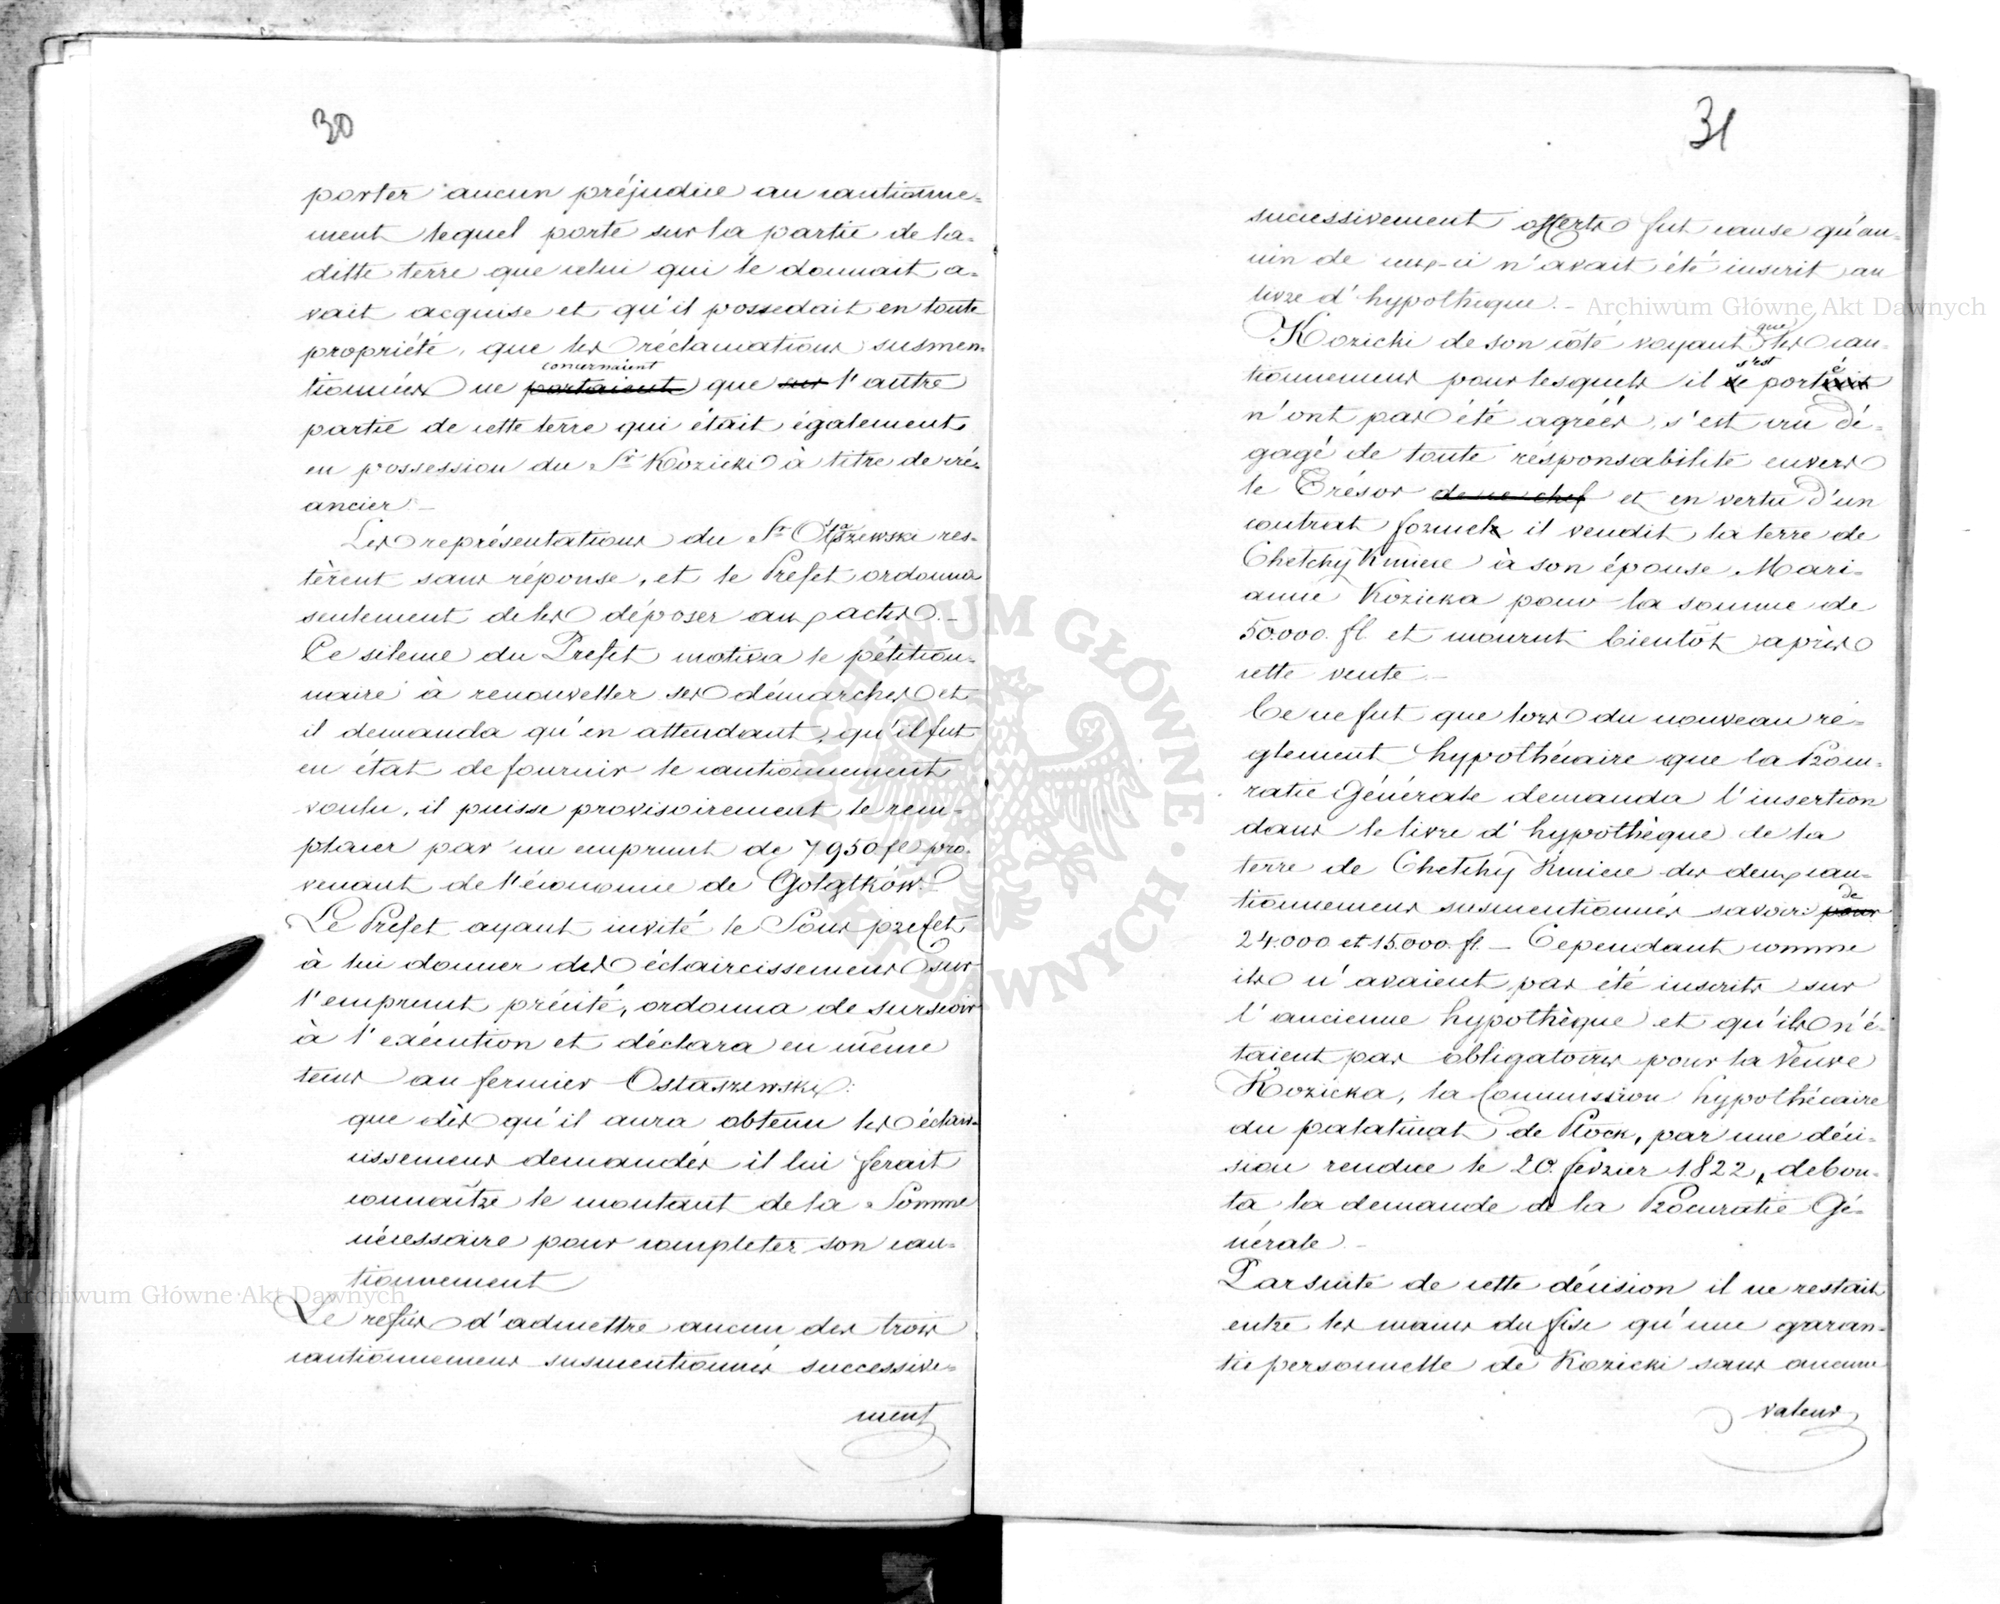 30
porter aucun préjudice au cautionne-
ment lequel porte sur la partie de la-
ditte terre que celui qui le donnait a-
vait acquise et qu'il possedait en toute
propriété, que les réclamations susmen-
concernaient
tionnées ne portaient que sur l'autre
partie de cette terre qui était également
en possession du Sr. Kozicki à titre de cré-
ancier.-
Les représentations du Sr. Ostaszewski res-
tèrent sans réponse, et le Prefet ordonna
seulement de les déposer aux actes.-
Ce silence du Prefet motiva le pétition-
naire à renouveller ses démarches et
il demanda qu'en attendant, qu'il fut
en état de fournir le cautionnement
voulu, il puisse provisoirement le rem-
placer par un emprunt de 7950 fl pro-
venant de l'économie de
Le Prefet ayant invité le Sous prefet
à lui donner des éclaircissemens sur
l'emprunt précité, ordonna de surseoir
à l'exécution et déclara en même
tems au fermier Ostaszewski:
que dès qu'il aura obtenu les éclair-
cissemens demandés il lui ferait
connaître le montant de la Somme
nécessaire pour completer son cau-
tionnement
Le refus d'admettre aucun des trois
cautionnemens susmentionnés successive-
ment
31
successivement offerts fut cause qu'au-
cun de ceux-ci n'avait été inscrit au
livre d'hypothèque.-
que
Kozicki de son côté voyant les cau-
s'est é
tionnemens pour lesquels il se portait
n'ont pas été agréés, s'est cru dé-
gagé de toute résponsabilité envers
le Trésor de ce chef et en vertu d'un
contrat formel il vendit la terre de
Chełchy Kmiece à son épouse Mari-
anne Kozicka pour la somme de
50.000. fl. et mourut bientôt après
cette vente.-
Ce ne fut que lors du nouveau ré-
glement hypothécaire que la Procu-
ratie Générale demanda l'insertion
dans le livre d'hypothèque de la
terre de Chełchy Kmiece des deux cau-
de
tionnemens susmentionnés savoir: pour
24.000 et 15.000. fl. - Cependant comme
ils n'avaient pas été inscrits sur
l'ancienne hypothèque et qu'ils n'é-
taient pas obligatoires pour la Veuve
Kozicka, la Commission hypothécaire
du palatinat de Płock, par une déci-
sion rendue le 20. fevrier 1822, debou-
ta la demande de la Procuratie Gé-
nérale.-
Par suite de cette décision il ne restait
entre les mains du fisc qu'une garan-
tie personnelle de Kozicki sans aucune
valeur
Archiwum Główne Akt Dawnych
Archiwum Główne Akt Dawnych
ARCHIWUM GŁÓWNE · AKT DAWNYCH ·